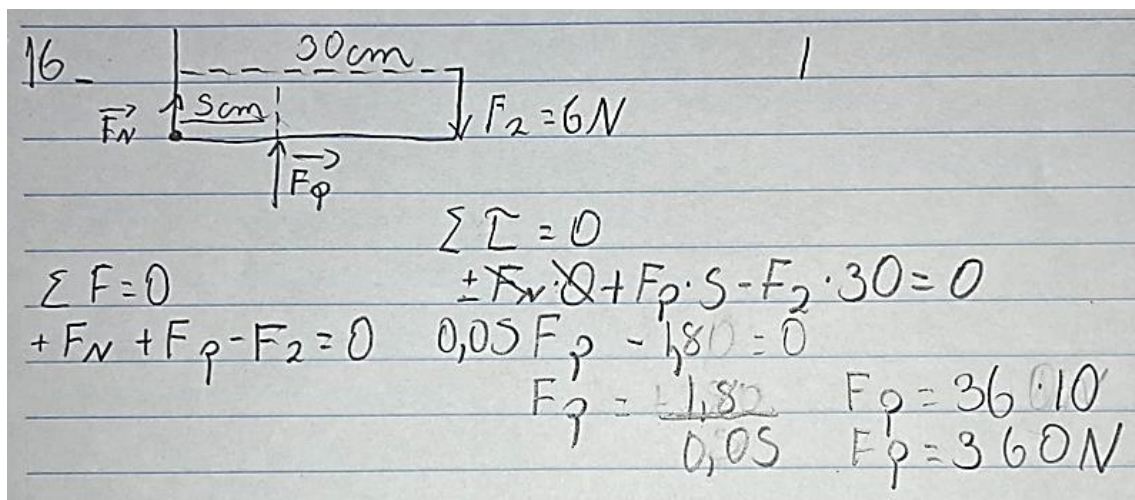 16_ 30cm 1
F⃗N 5cm F2 = 6N
F⃗p
Σ τ = 0
Σ F = 0 ± F̶N̶·̶0̶ + Fp·5 - F2·30 = 0
+ FN + Fp - F2 = 0 0,05 Fp - 1,80 = 0
Fp = -1,80/0,05 Fp = 36·10
Fp = 360N